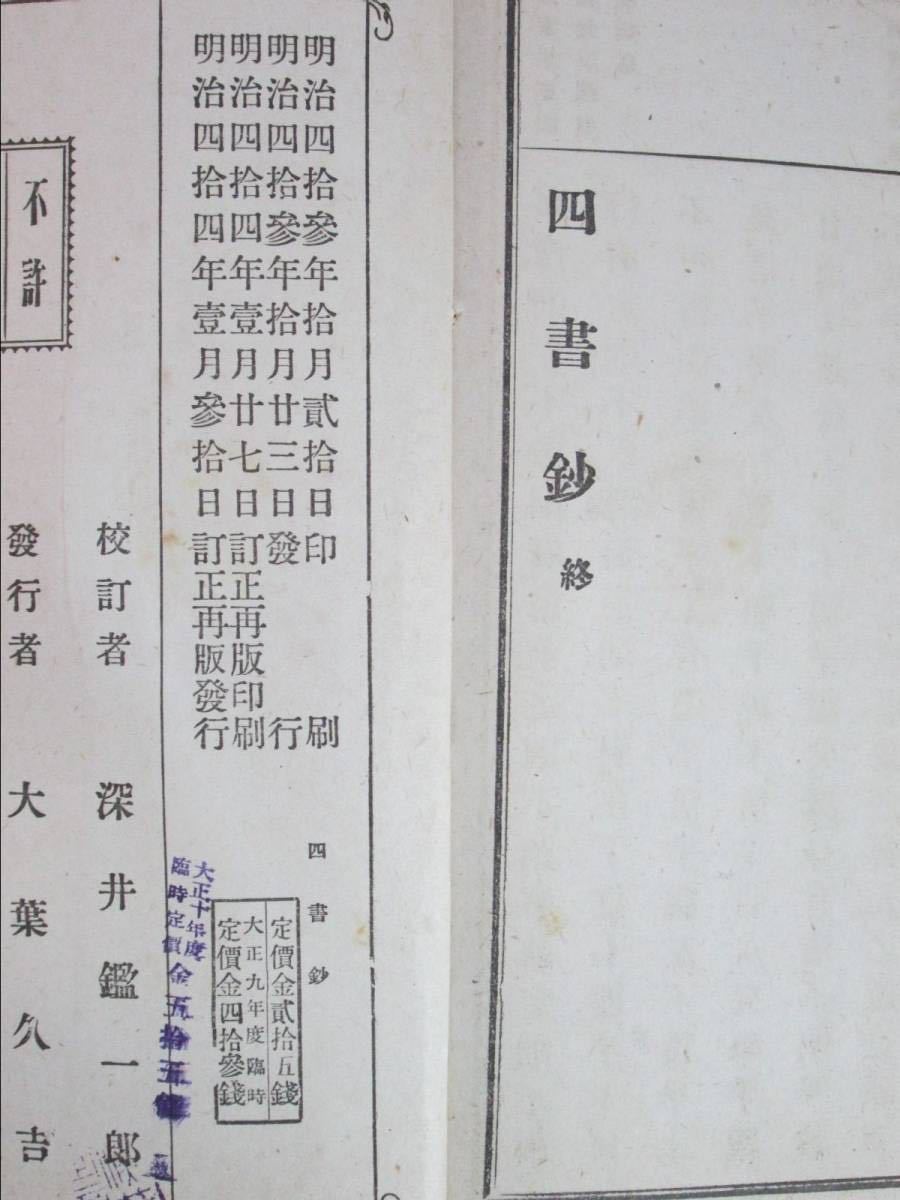 四書鈔 終
明治四拾參年拾月貳拾日印刷
明治四拾參年拾月廿三日發行
明治四拾四年壹月廿七日訂正再版印刷
明治四拾四年壹月參拾日訂正再版發行
四書鈔
定價金貳拾五錢
大正九年度臨時
定價金四拾參錢
大正十年度
臨時定價金五拾五錢
校訂者 深井鑑一郎
發行者 大葉久吉
不許